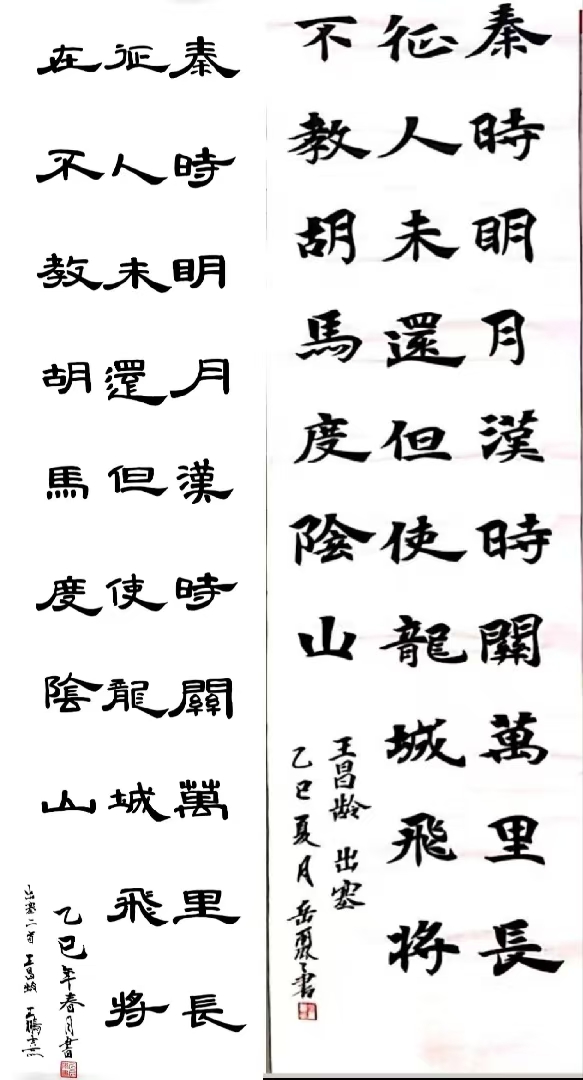 秦時明月漢時關萬里長
征人未還但使龍城飛將
在不教胡馬度陰山
乙巳年春月書
出塞二首 王昌龄
秦時明月漢時關萬里長
征人未還但使龍城飛將
不教胡馬度陰山
王昌龄 出塞
乙巳夏月岳